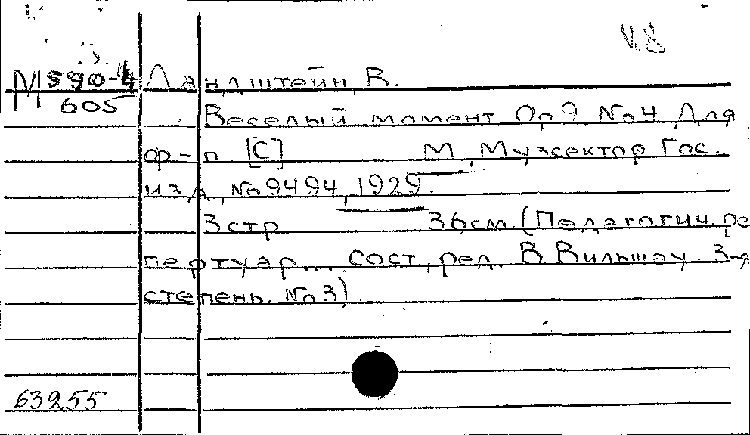 V.8
М 590-4 Ландштейн, В.
605
Веселый момент Op 9 No4 Для
ф-п [C] М, Музсектор Гос.
изд, No9494, 1929.
3стр 36см. (Педагогич. ре
пертуар... сост, ред. В Вильшау. 3-я
степень. No3)
63255